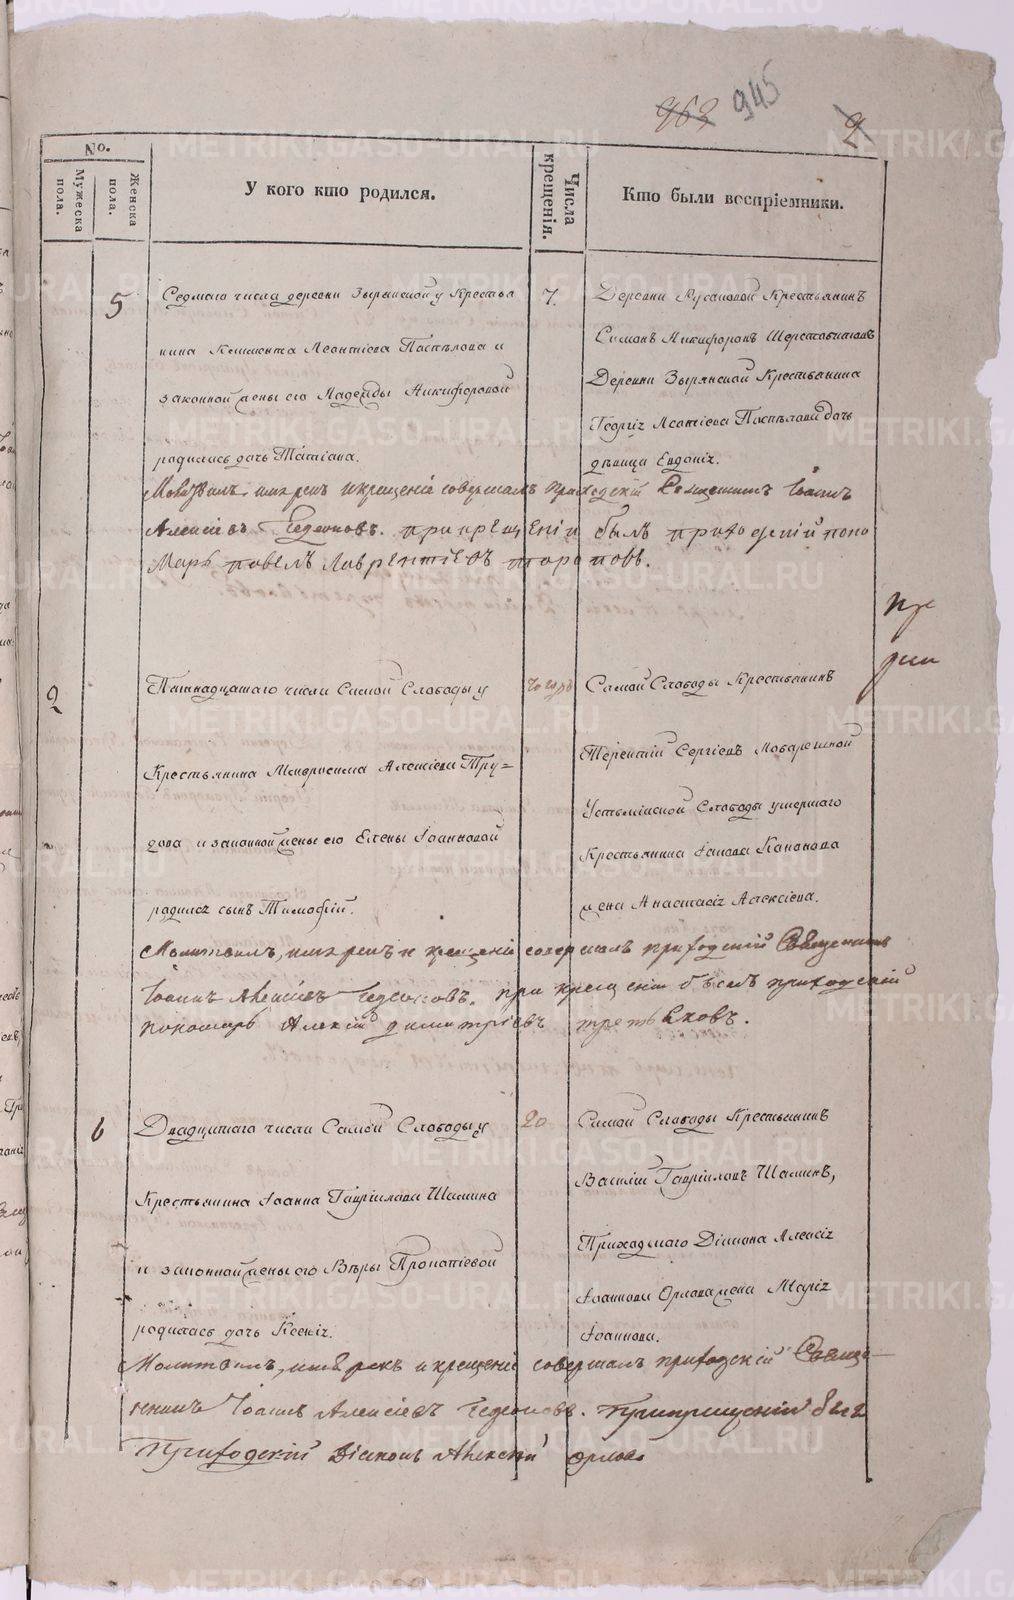 963 945 2
No.
Мужеска пола.
Женска пола.
У кого кто родился.
Числа крещенія.
Кто были воспріемники.
5
Седмаго числа деревни Зырянской у Крестья
нина Климента Леонтіева Паспѣлова и
законной жены его Надежды Никифоровой
родилась дочь Татіана.
7.
Деревни Русаковой Крестьянинъ
Симонъ Никифоровъ Шерстобитовъ
Деревни Зырянской Крестьянина
Георгія Леонтіева Паспѣлова дочь
дѣвица Евдокія.
Молитвилъ, имя рекъ и крещеніе совершалъ приходскій Священникъ Іоаннъ
Алексіевъ Гедеоновъ. при крещеніи былъ приходскій поно
марь павелъ Лаврентіевъ тороповъ.
2
Пятнадцатаго числа Самой Слободы у
Крестьянина Амвросима Алексіева Тру=
дова и законной жены его Елены Іоанновой
родился сынъ Тимофій.
Самой Слободы Крестьянинъ
Терентій Сергіевъ
Слободы умершаго
Крестьянина Іакова Кононова
жена Анастасія Алексіева.
Молитвилъ, имя рекъ и крещеніе совершалъ приходскій Священникъ
Іоаннъ Алексіевъ Гедеоновъ. при крещеніи былъ приходскій
пономарь Алексій димитріевъ третьяковъ.
6
Двадцатаго числа Самой Слободы у
Крестьянина Іоанна Гавріилова Шалина
и законной жены его Вѣры Прокопіевой
родилась дочь Ксенія.
20
Самой Слободы Крестьянинъ
Василій Гавріиловъ Шалинъ,
Приходскаго Діакона Алексія
Іоаннова Орлова жена Марія
Іоаннова.
Молитвилъ, имя рекъ и крещеніе совершалъ приходскій Свяще-
нникъ Іоаннъ Алексіевъ Гедеоновъ. При крещеніи былъ
Приходскій Діаконъ Алексій орловъ
METRIKI.GASO-URAL.RU